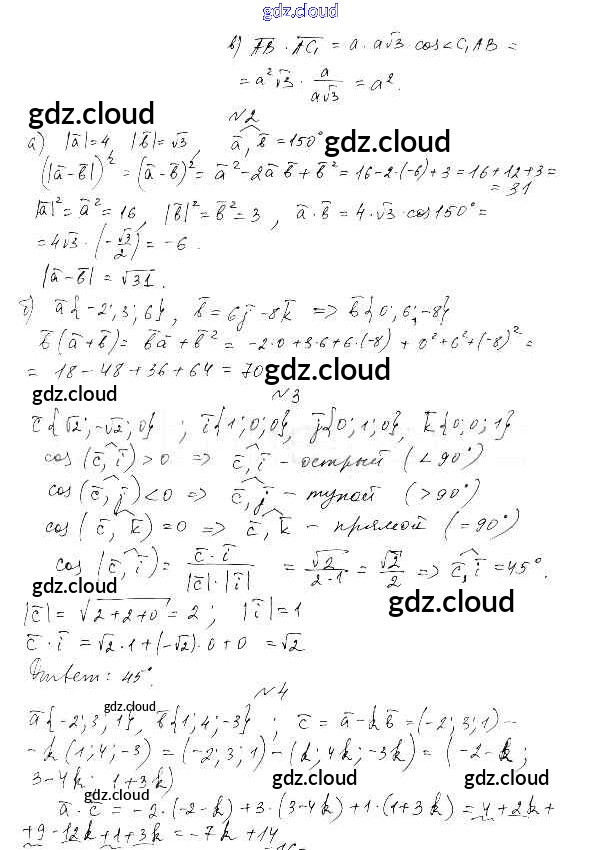 gdz.cloud
в) AB · AC₁ = a · a√3 · cos∠C₁AB =
= a²√3 · a/(a√3) = a².
№2
gdz.cloud
а) |a|=4, |b|=√3, a,b = 150°
gdz.cloud
(|a-b|)² = (a-b)² = a² - 2ab + b² = 16-2·(-6)+3 = 16+12+3 =
= 31
|a|² = a² = 16, |b|² = b² = 3, a·b = 4·√3·cos150° =
= 4√3 · (-√3/2) = -6.
|a-b| = √31.
a{-2; 3; 6}, b = 6j - 8k => b{0; 6; -8}
b(a+b) = ba + b² = -2·0 + 3·6 + 6·(-8) + 0² + 6² + (-8)² =
= 18 - 48 + 36 + 64 = 70
gdz.cloud
gdz.cloud
№3
c{√2; -√2; 0}; i{1; 0; 0}, j{0; 1; 0}, k{0; 0; 1}
cos(c, i) > 0 => c, i - острый (< 90°)
cos(c, j) < 0 => c, j - тупой (> 90°)
cos(c, k) = 0 => c, k - прямой (= 90°)
cos(c, i) = c·i/(|c|·|i|) = √2/(2·1) = √2/2 => c, i = 45°.
gdz.cloud
gdz.cloud
|c| = √(2+2+0) = 2; |i| = 1
c·i = √2·1 + (-√2)·0 + 0 = √2
Ответ: 45°.
№4
gdz.cloud
a{-2; 3; 1}, b{1; 4; -3}; c = a - kb = (-2; 3; 1) -
- k(1; 4; -3) = (-2; 3; 1) - (k; 4k; -3k) = (-2-k;
3-4k; 1+3k)
gdz.cloud
gdz.cloud
a·c = -2·(-2-k) + 3·(3-4k) + 1·(1+3k) = 4+2k+
+9-12k+1+3k = -7k+14
gdz.cloud
gdz.cloud